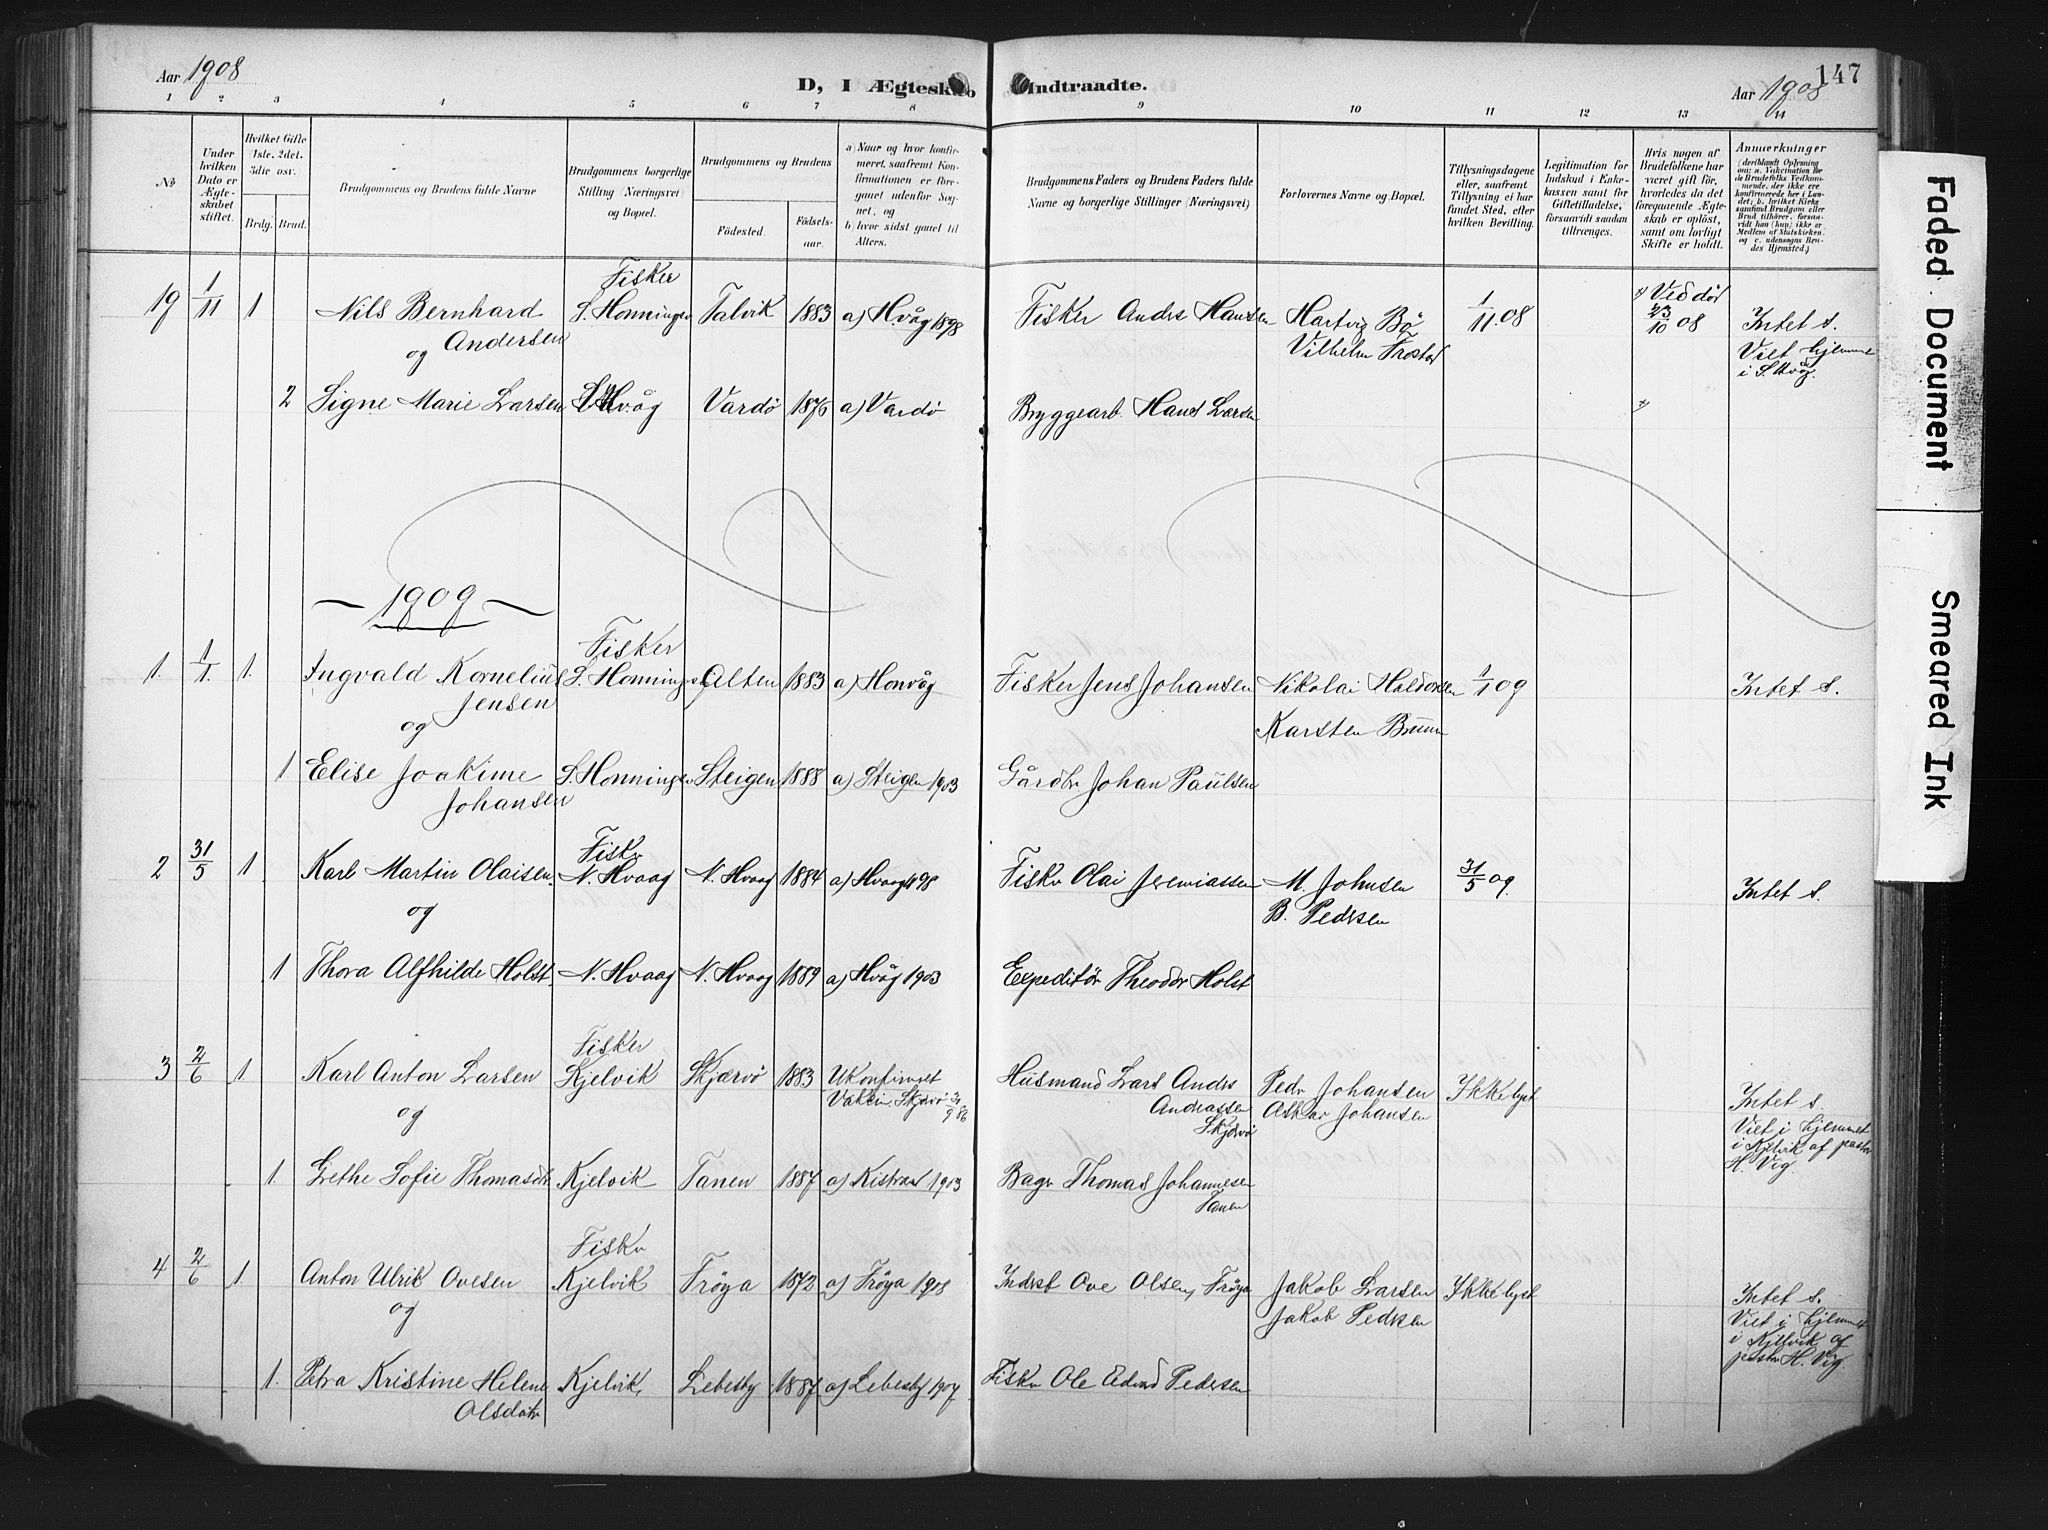 Aar 1908
D, I Ægteskab Indtraadte.
Aar 1908
147
1 2 3 4 5 6 7 8 9 10 11 12 13 14
№
Under hvilken Dato er Ægteskabet stiftet.
Hvilket Gifte 1ste, 2det, 3die osv.
Brdg. Brud.
Brudgommens og Brudens fulde Navne
Brudgommens borgerlige Stilling (Næringsvei) og Bopæl.
Brudgommens og Brudens
Fødested.
Fødselsaar.
a) Naar og hvor konfirmeret, saafremt Konfirmationen er foregaaet udenfor Sognet, og
b) hvor sidst gaaet til Alters.
Brudgommens Faders og Brudens Faders fulde Navne og borgerlige Stillinger (Næringsvei)
Forlovernes Navne og Bopæl.
Tillysningsdagene eller, saafremt Tillysning ei har fundet Sted, efter hvilken Bevilling.
Legitimation for Indskud i Enkekassen samt for Giftetilladelse, forsaavidt saadan tiltrænges.
Hvis nogen af Brudefolkene har været gift før, hvorledes da det foregaaende Ægteskab er opløst, samt om lovligt Skifte er holdt.
Anmærkninger
19 1/11 1 Nils Bernhard Andersen Fisker S. Honningsv Talvik 1883 a) H.våg 1898 Fisker Andrs Hansen Hartvig Bö 1/11.08 x) Ved död 23/10 08 Intet s.
og
Vilhelm Trostad
Viet i hjemmet i S. Hvåg.
2 Signe Marie Larsen Hv.åg Vardö 1876 a) Vardö Bryggearb. Hans Larsen x)
1909
1. 1/1. 1. Ingvald Kornelius Jensen Fisker S. Honningsv Alten 1883 a) Honvåg Fisker Jens Johansen Nikolai Haldorsen 1/1 09 Intet s.
og
Karsten Bruun
1 Elise Joakime Johansen S. Honningsv Steigen 1888 a) Steigen 1903 Gårdbr Johan Paulsen
2 31/5 1 Karl Martin Olaisen Fiskr N. Hvaag N. Hvaag 1884 a) Hvaag 98 Fiskr Olai Jeremiassen M. Johnsen 31/5 09. Intet s.
og
B. Pedrsen
1 Thora Alfhilde Holst N. Hvaag N. Hvaag 1889 a) Hvåg 1903 Expeditör Theodor Holst
3 2/6 1. Karl Anton Larsen Fisker Kjelvik Skjærvö 1883 Ukonfirmet Husmand Lars Andrs Andreassen Skjervö Pedr Johansen Ikke lyst Intet s.
og
Vakcin. Skjervö
Askar Johansen
Viet i hjemmet i Kjelvik af pastor H. Vig.
1. Grethe Sofie Thomasdtr Kjelvik Tanen 1887 a) Kistrand 1903 Bagr Thomas Johannesen Tanen
4 2/6 1. Anton Ulrik Ovesen Fiskr Kjelvik Fröya 1872 a) Fröya 1908 Indrst Ove Olsen, Fröya Jakob Larsen Ikke lyst Intet s.
og
Jakob Pedrsen
Viet i hjemmet i Kjelvik af pastor H. Vig.
1. Petra Kristine Helene Olsdatr Kjelvik, Lebesby 1887 a) Lebesby 1907 Fiskr Ole Edvard Pedersen
Faded Document
Smeared Ink